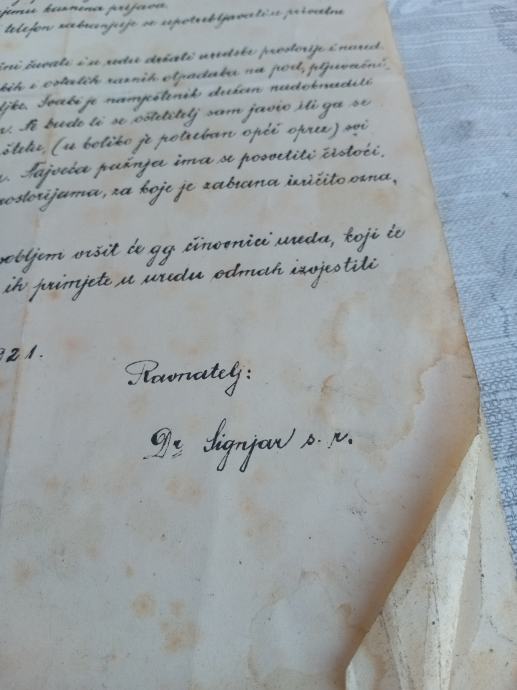 kaznena prijava.
telefon zabranjuje se upotrebljavati u privatne
čuvati i u redu držati uredske prostorije i nared
kih i ostalih raznih otpadaka na pod, pljuvačni
Svaki je namještenik dužan nadoknaditi
Ne bude li se oštetitelj sam javio ili ga se
štete, (u koliko je potreban opći oprez) svi
Najveća pažnja ima se posvetiti čistoći.
prostorijama, za koje je zabrana izričito ozna,
sobljem vršit će gg. činovnici ureda, koji će
ih primjete u uredu odmah izvjestiti
921.
Ravnatelj:
Dr Signjar s. r.